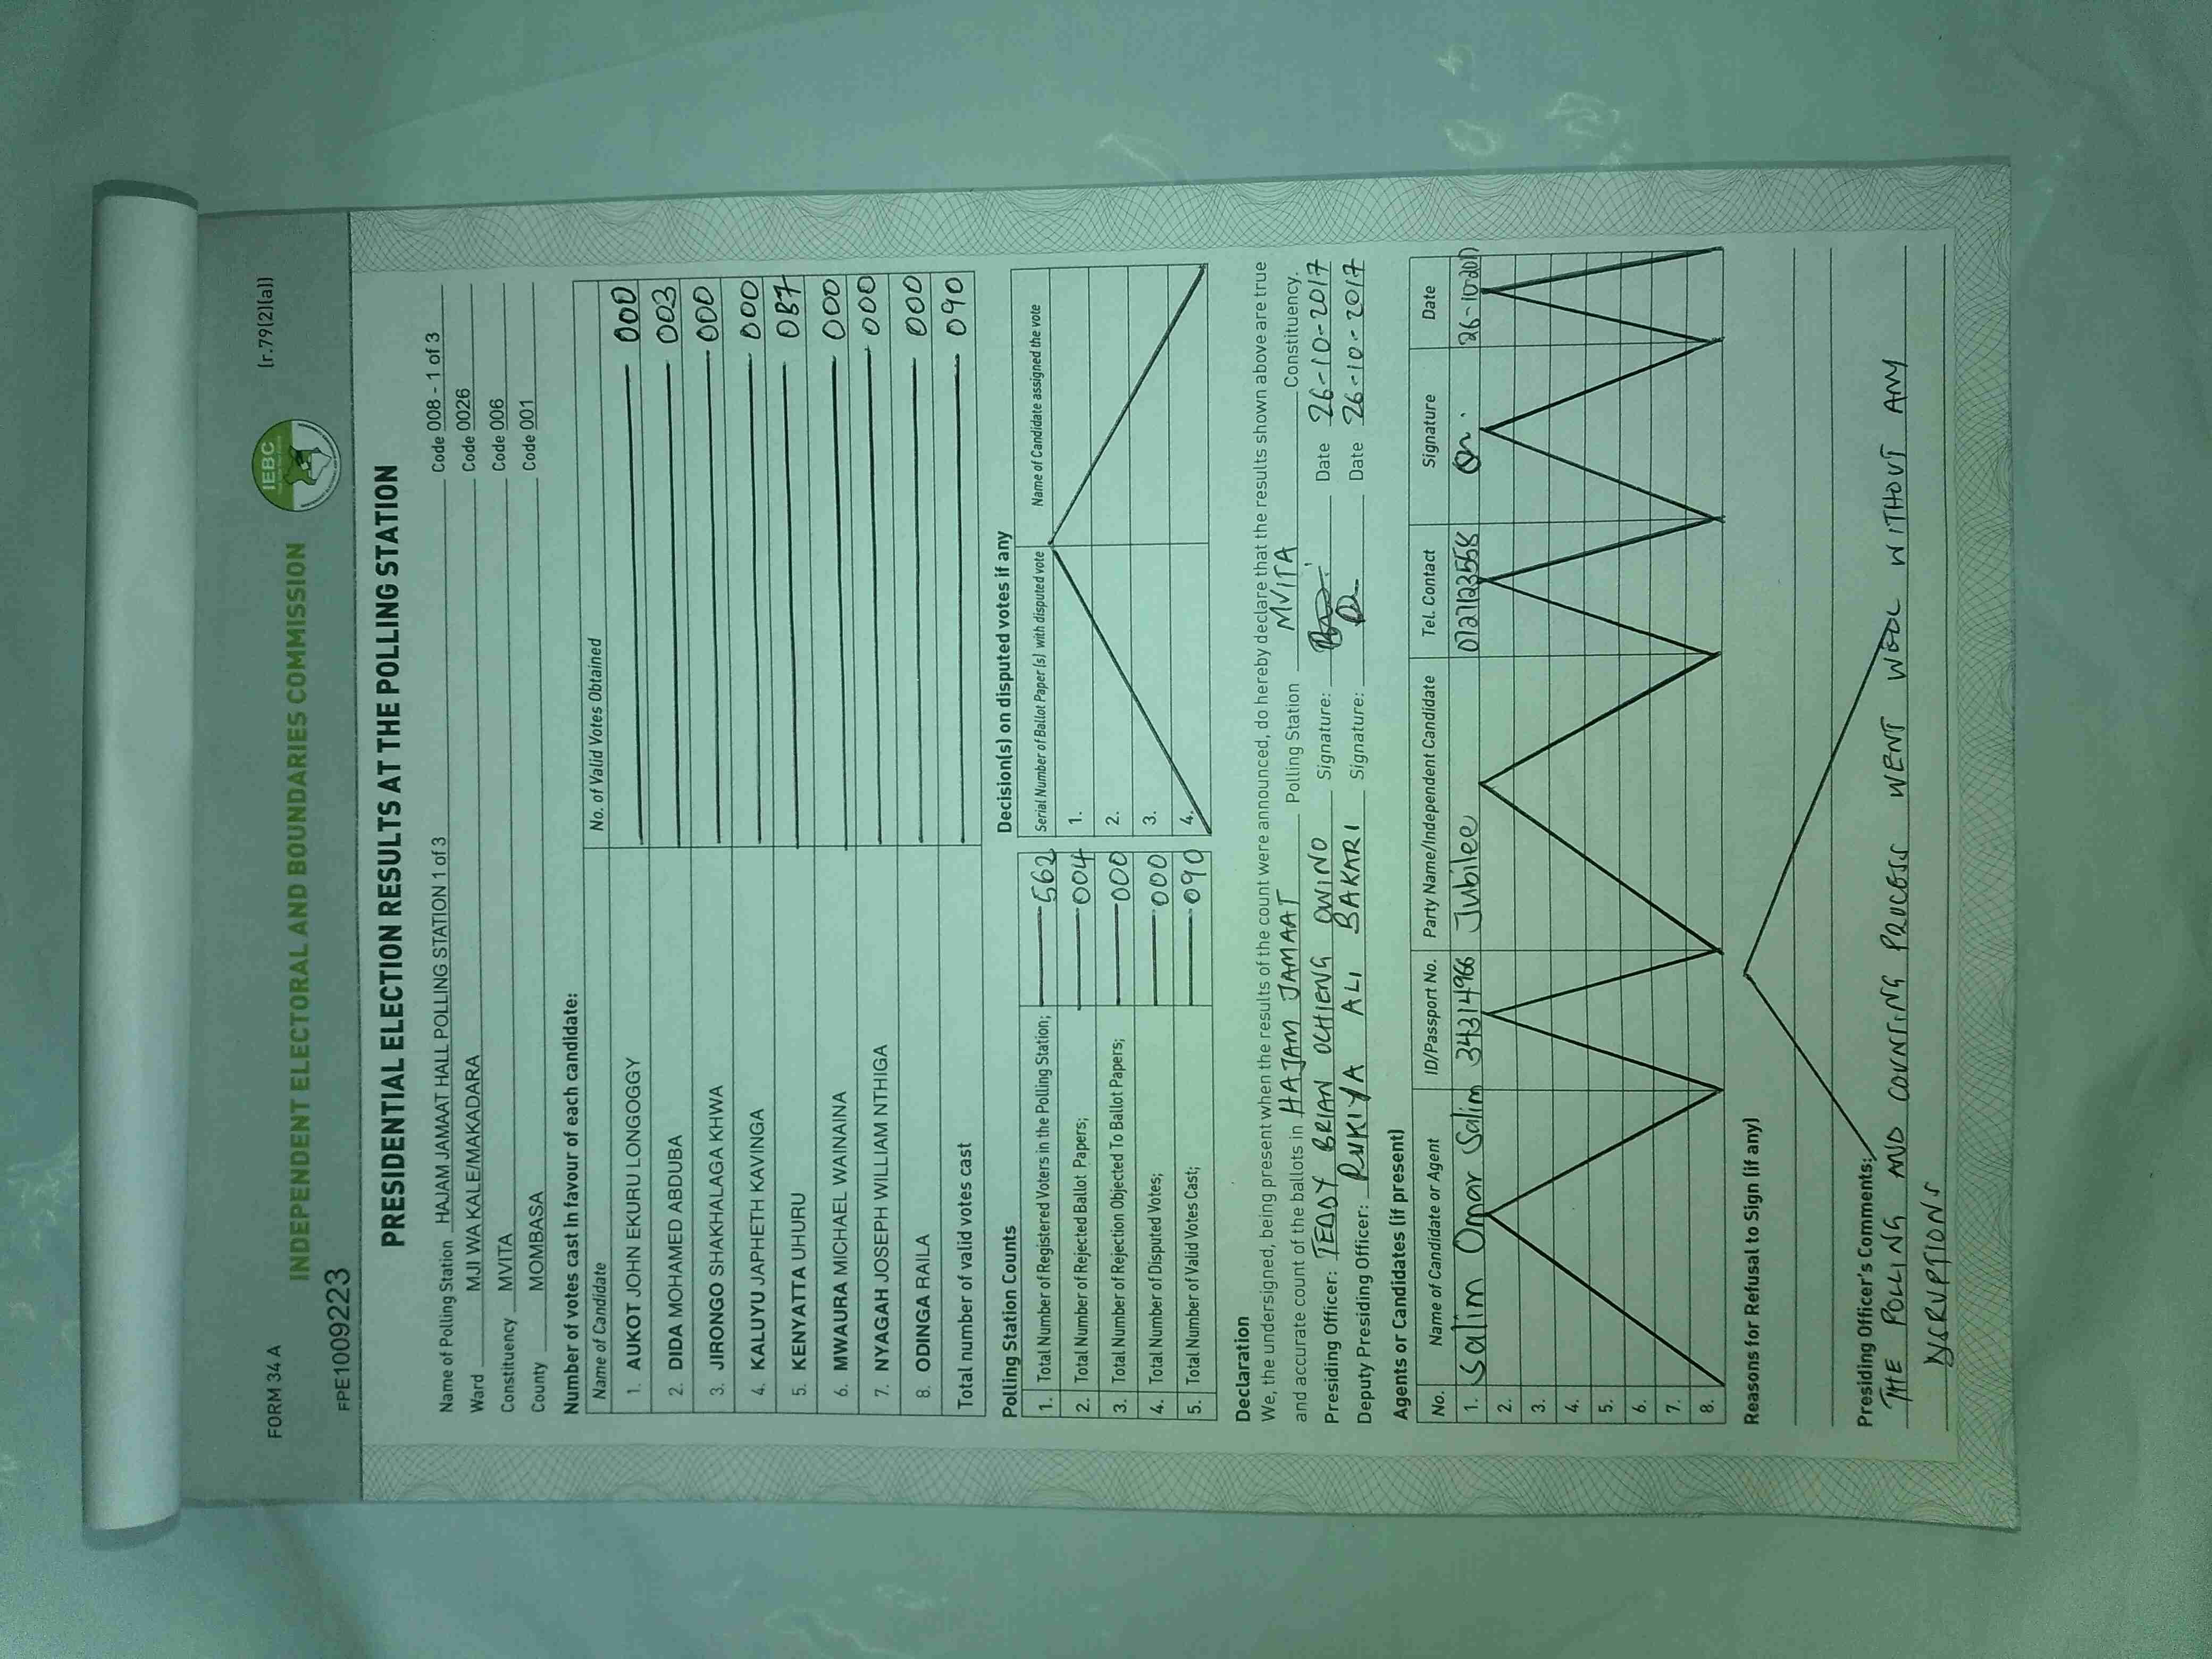 FORM 34 A
(r.79(2)(a))
INDEPENDENT ELECTORAL AND BOUNDARIES COMMISSION
IEBC
FPE1009223
PRESIDENTIAL ELECTION RESULTS AT THE POLLING STATION
Name of Polling Station HAJAM JAMAAT HALL POLLING STATION 1 of 3 Code 008 - 1 of 3
Ward MJI WA KALE/MAKADARA Code 0026
Constituency MVITA Code 006
County MOMBASA Code 001
Number of votes cast in favour of each candidate:
Name of Candidate No. of Valid Votes Obtained
1. AUKOT JOHN EKURU LONGOGGY 000
2. DIDA MOHAMED ABDUBA 003
3. JIRONGO SHAKHALAGA KHWA 000
4. KALUYU JAPHETH KAVINGA 000
5. KENYATTA UHURU 087
6. MWAURA MICHAEL WAINAINA 000
7. NYAGAH JOSEPH WILLIAM NTHIGA 000
8. ODINGA RAILA 000
Total number of valid votes cast 090
Polling Station Counts
1. Total Number of Registered Voters in the Polling Station; 562
2. Total Number of Rejected Ballot Papers; 004
3. Total Number of Rejection Objected To Ballot Papers; 000
4. Total Number of Disputed Votes; 000
5. Total Number of Valid Votes Cast; 090
Decision(s) on disputed votes if any
Serial Number of Ballot Paper (s) with disputed vote Name of Candidate assigned the vote
1.
2.
3.
4.
Declaration
We, the undersigned, being present when the results of the count were announced, do hereby declare that the results shown above are true
and accurate count of the ballots in HAJAM JAMAAT Polling Station MVITA Constituency.
Presiding Officer: TEDDY BRIAN OCHIENG OWINO Signature: Date 26-10-2017
Deputy Presiding Officer: RUKIYA ALI BAKARI Signature: Date 26-10-2017
Agents or Candidates (if present)
No. Name of Candidate or Agent ID/Passport No. Party Name/Independent Candidate Tel. Contact Signature Date
1. Salim Omar Salim 34314966 Jubilee 26-10-2017
2.
3.
4.
5.
6.
7.
8.
Reasons for Refusal to Sign (if any)
Presiding Officer's Comments:
THE POLLING AND COUNTING PROCESS WENT WELL WITHOUT ANY
DISRUPTIONS